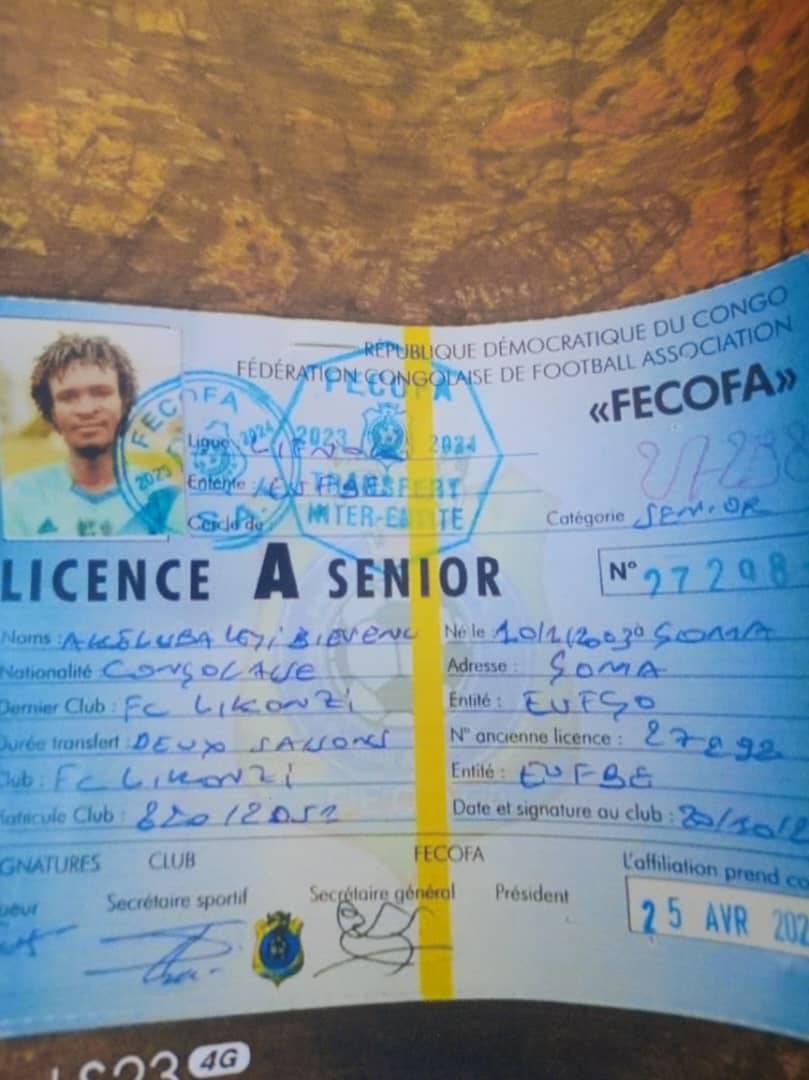 RÉPUBLIQUE DÉMOCRATIQUE DU CONGO
FÉDÉRATION CONGOLAISE DE FOOTBALL ASSOCIATION
«FECOFA»
FECOFA
2023 2024
FECOFA
2023 2024
TRANSFERT
INTER-ENTITE
Ligue
Entente :
Cercle de :
Catégorie SENIOR
LICENCE A SENIOR
N° 27298
Noms :
Né le 10/1/2003 à GOMA
Nationalité CONGOLAISE
Adresse : GOMA
Dernier Club : FC LIKONZI
Entité : EUFGO
Durée transfert : DEUX SAISONS
N° ancienne licence :
Club : FC LIKONZI
Entité : EUFBE
Matricule Club :
Date et signature au club : 20/10/2
GNATURES CLUB FECOFA
L'affiliation prend co
ueur Secrétaire sportif Secrétaire général Président
25 AVR 202
4G